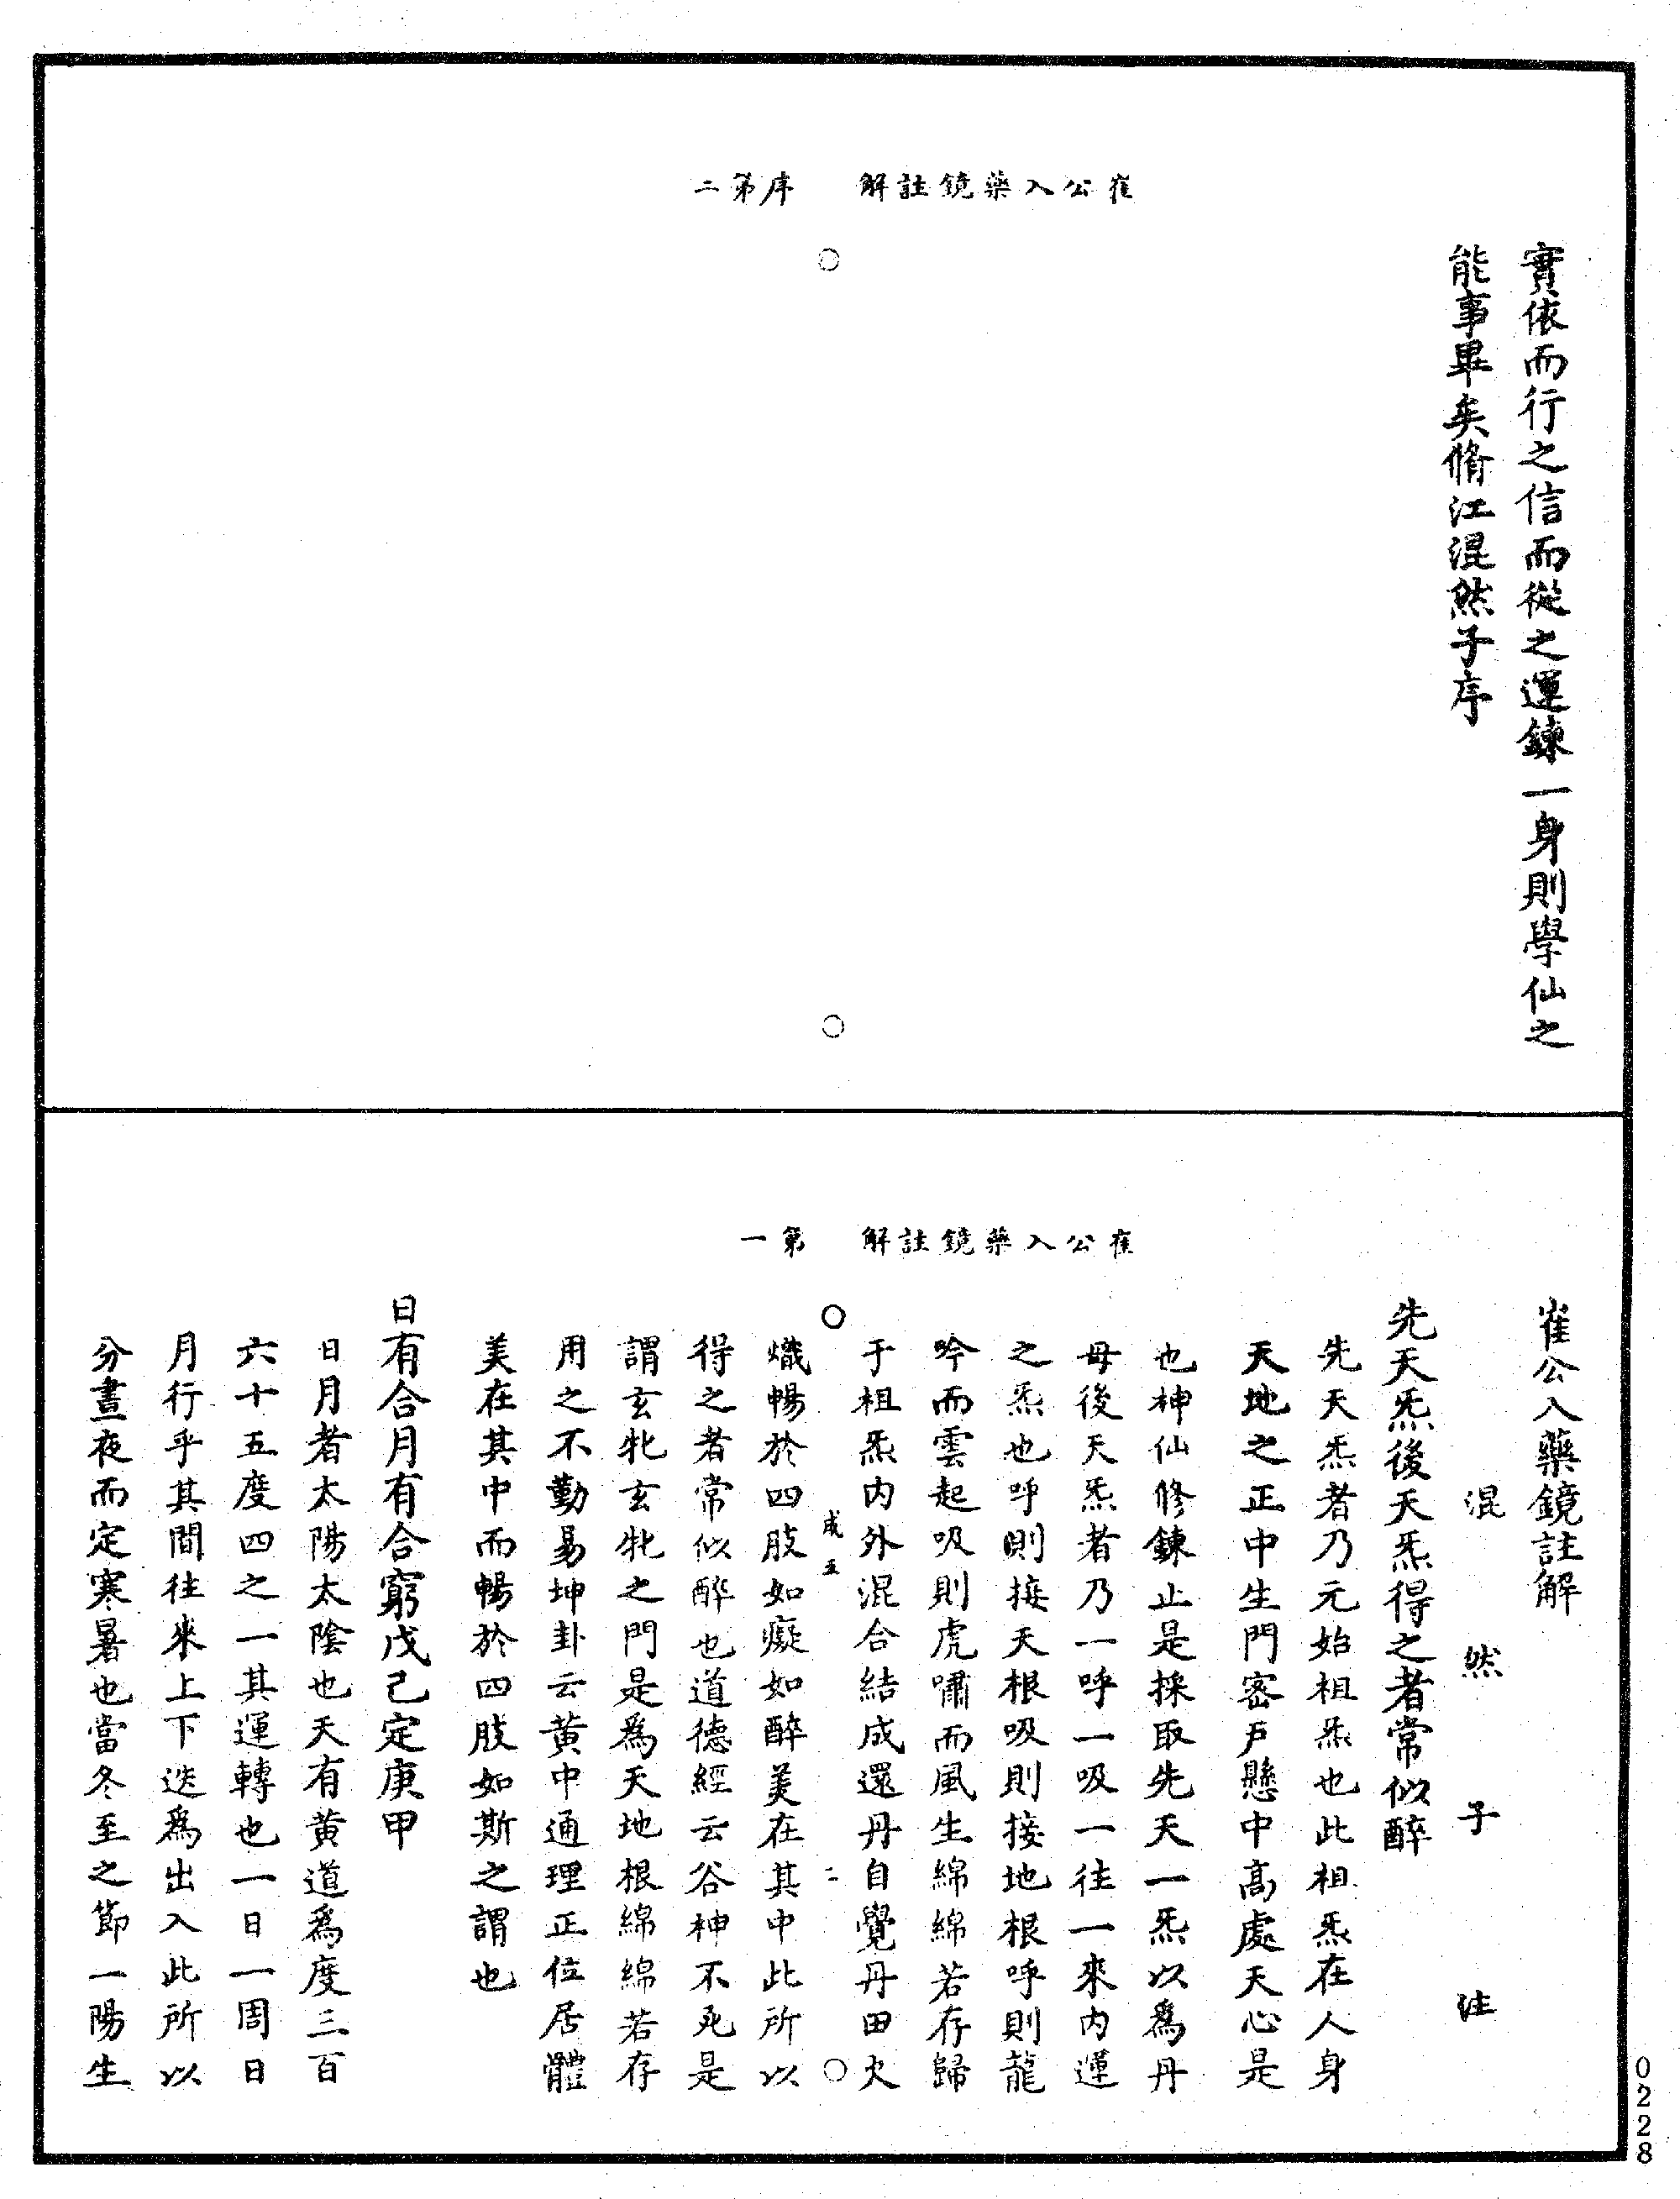 崔公入藥鏡註解　序第二
實依而行之信而從之運鍊一身則學仙之
能事畢矣脩江混然子序
崔公入藥鏡註解　第一
崔公入藥鏡註解
混然子註
先天炁後天炁得之者常似醉
先天炁者乃元始祖炁也此祖炁在人身
天地之正中生門密戶懸中高處天心是
也神仙修鍊止是採取先天一炁以為丹
母後天炁者乃一呼一吸一往一來內運
之炁也呼則接天根吸則接地根呼則龍
吟而雲起吸則虎嘯而風生綿綿若存歸
于祖炁內外混合結成還丹自覺丹田火
成五　二
熾暢於四肢如癡如醉美在其中此所以
得之者常似醉也道德經云谷神不死是
謂玄牝玄牝之門是為天地根綿綿若存
用之不勤易坤卦云黃中通理正位居體
美在其中而暢於四肢如斯之謂也
日有合月有合窮戊己定庚甲
日月者太陽太陰也天有黃道為度三百
六十五度四之一其運轉也一日一周日
月行乎其間往來上下迭為出入此所以
分晝夜而定寒暑也當冬至之節一陽生
0228